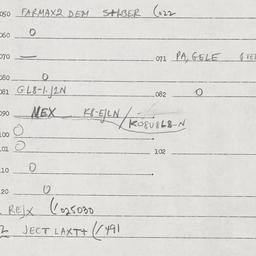 050 FARMAX2 DEM SABER (022
060 0
070 — 071 PA, GELE
080 0
081 GL8-1.J1N 082 0
090 MEX K8-EJLN / KO8V8L8-N
100 0
101 0 102
110 0
120 0
REJX (1025030
2 JECT LAXT4 (1491